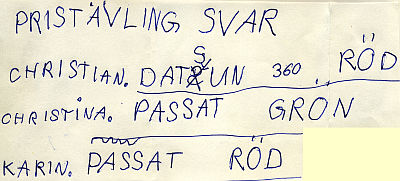 PRISTÄVLING SVAR
CHRISTIAN. DATSUN 360 RÖD
CHRISTINA. PASSAT GRON
KARIN. PASSAT RÖD